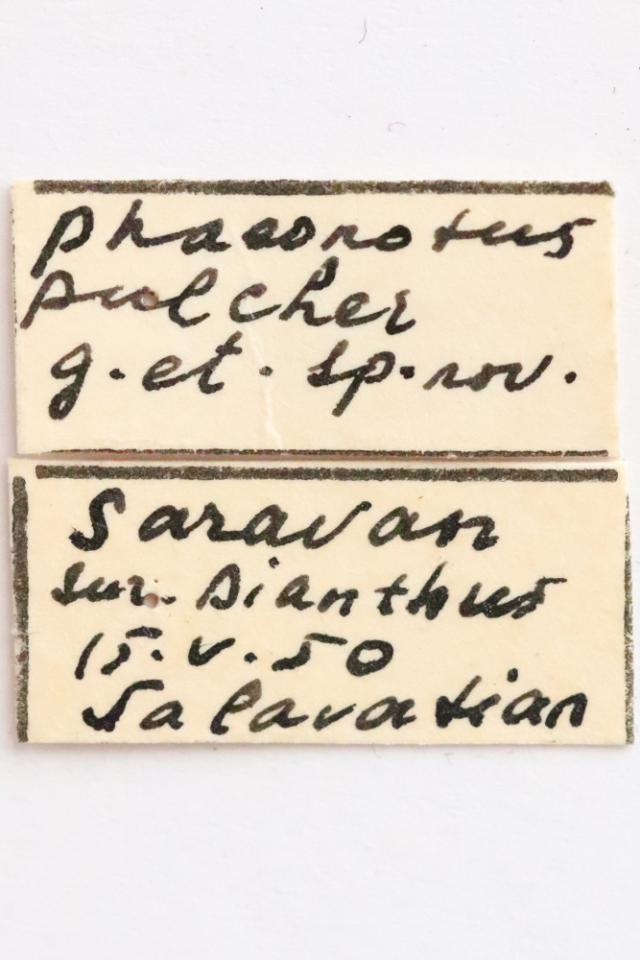 phaeonotus
pulcher
g. et. sp. nov.
Saravan
sur. Dianthus
15. V. 50
Salavatian